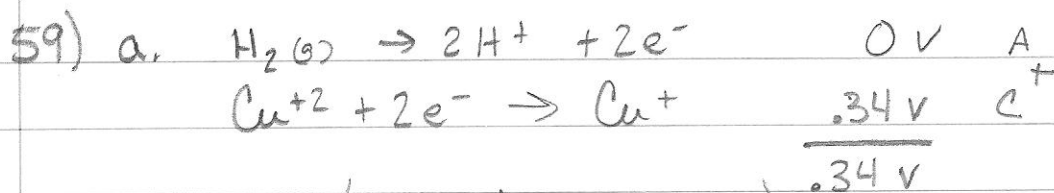 59) a. H₂(g) → 2H⁺ + 2e⁻ 0 V A
Cu⁺² + 2e⁻ → Cu⁺ .34 V C⁺
.34 V